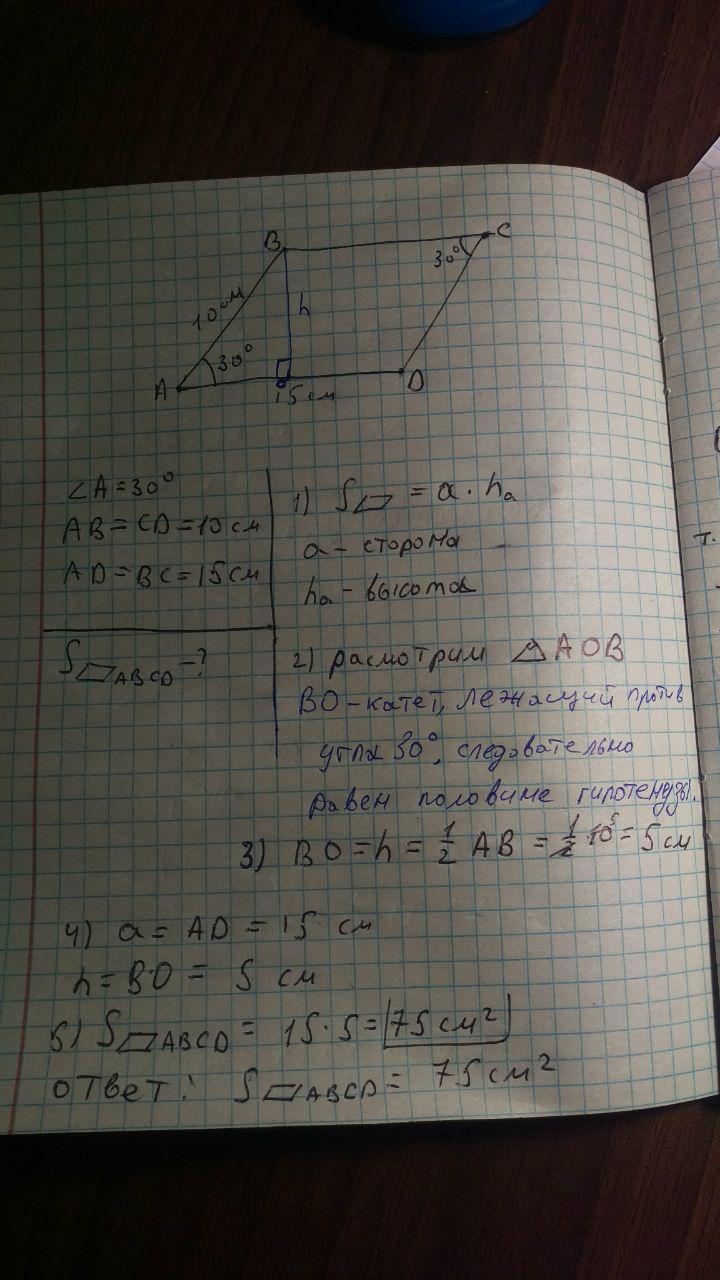 B
C
30°
10 см
h
30°
A
D
15 см
∠A = 30°
AB = CD = 10 см
AD = BC = 15 см
S▱ABCD - ?
1) S▱ = a · hₐ
a - сторона
hₐ - высота
2) расмотрим △AOB
BO - катет, лежащий против
угла 30°, следовательно
равен половине гипотенузы.
3) BO = h = 1/2 AB = 1/2 10 5 = 5 см
4) a = AD = 15 см
h = BO = 5 см
5) S▱ABCD = 15 · 5 = 75 см²
ответ: S▱ABCD = 75 см²
т.